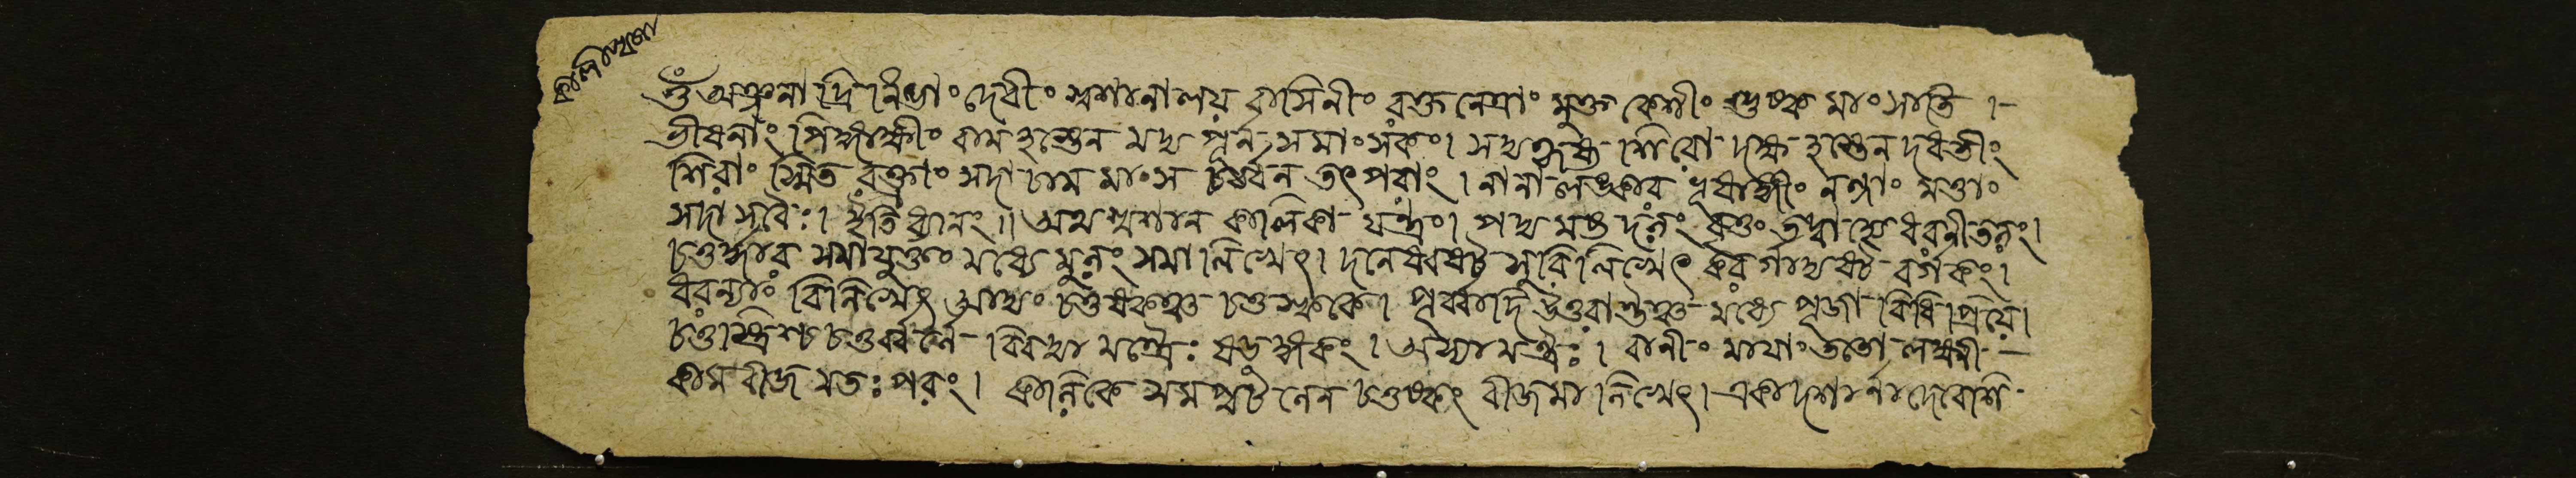 কালিধ্যান
ওঁ অঞ্জনাদ্রিনিভাং দেবীং শ্মশানালয় বাসিনীং রক্তনেত্রাং মুক্তকেশীং শুষ্কমাংসাতি ।-
ভীষনাং পিঙ্গাক্ষীং বাম হস্তেন মদ্য পূর্ন সমাংসকং। সদ্য কৃত্ত শিরো দক্ষ হস্তেন দধতীং
শিরাং স্মিত বক্ত্রাং সদা চাম মাংস চর্ব্বন তৎপরাং । নানালঙ্কার ভূষাঙ্গীং নগ্নাং মত্তাং
সদা সবৈঃ। ইতি ধ্যানং ॥ অথ শ্মশান কালিকা যন্ত্রং। পদ্ম মষ্টদলং বৃত্তং তদ্বাহ্যে ধরনীতলং।
চতুর্দ্দ্বার সমাযুক্তং মধ্যে মূলং সমালিখেৎ। দলেষ্বষ্ট সু বিলিখেৎ কবর্গাদ্যষ্ট বর্গকং।
ধরন্যাং বিলিখেৎ আদ্যং চতুষ্কঞ্চ চতুষ্ককে। পূর্ব্বাদি উত্তরান্তঞ্চ মধ্যে পূজা বিধি প্রিয়ে।
চতুস্ত্রিশ্চ চতুর্ব্বর্নৈ মন্ত্রৈঃ ষড়ঙ্গকং । অস্যা মন্ত্রঃ। বানীং মায়াং ততো লক্ষ্মী -
কাম বীজ মতঃ পরং। কালিকে সম্পুট নেন চতুষ্কং বীজমালিখেৎ। একাদশার্না দেবেশি